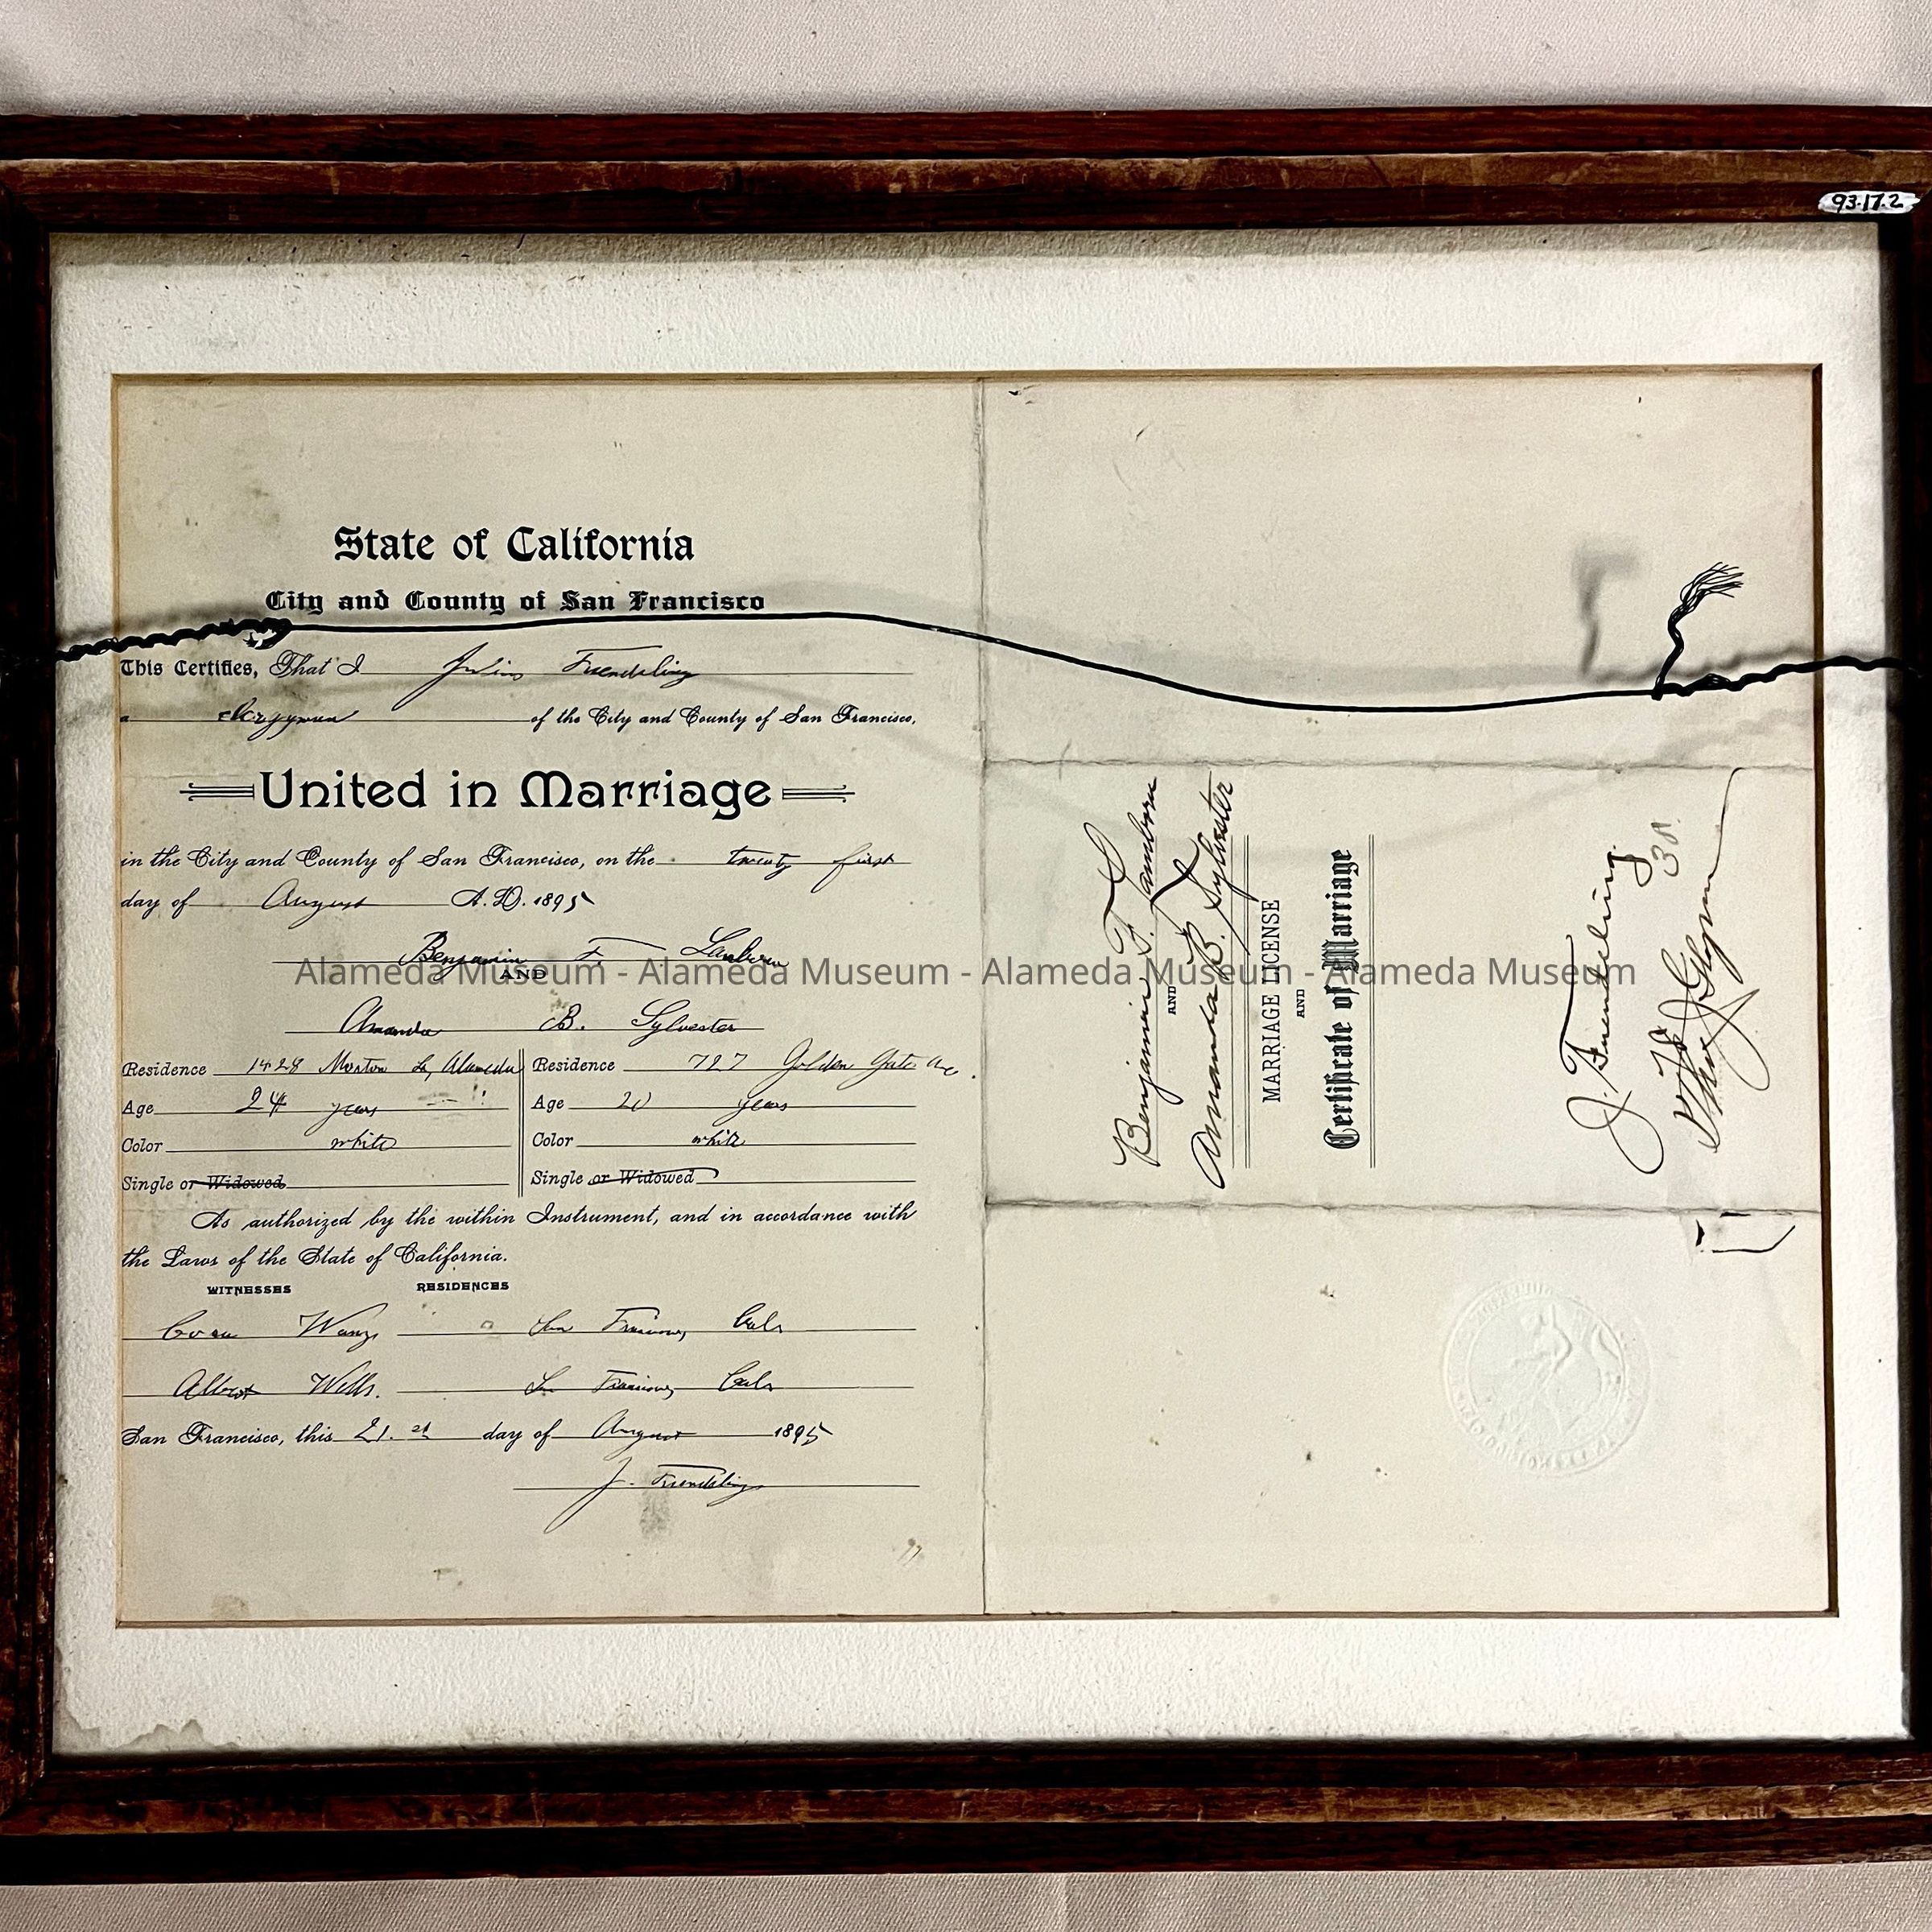 93.17.2
State of California
City and County of San Francisco
This Certifies, That I Julius Fuendeling
a clergyman of the City and County of San Francisco,
United in Marriage
in the City and County of San Francisco, on the twenty first
day of August A.D. 1895
Benjamin F. Lamborn
AND
Alameda Museum - Alameda Museum - Alameda Museum - Alameda Museum
Amanda B. Sylvester
Residence 1428 Morton St, Alameda Residence 727 Golden Gate Ave.
Age 24 years Age 20 years
Color white Color white
Single or Widowed Single or Widowed
As authorized by the within Instrument, and in accordance with
the Laws of the State of California.
WITNESSES RESIDENCES
San Francisco, Cala
Albert Wells. San Francisco, Cala
San Francisco, this 21.st day of August 1895
J. Fuendeling
Benjamin F. Lamborn
AND
Amanda B. Sylvester
MARRIAGE LICENSE
AND
Certificate of Marriage
J. Fuendeling